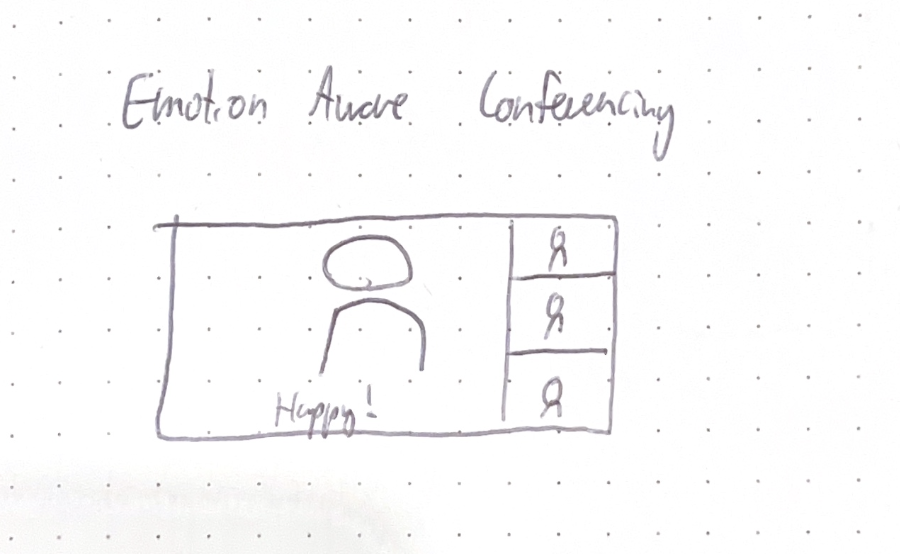 Emotion Aware Conferencing
Happy!